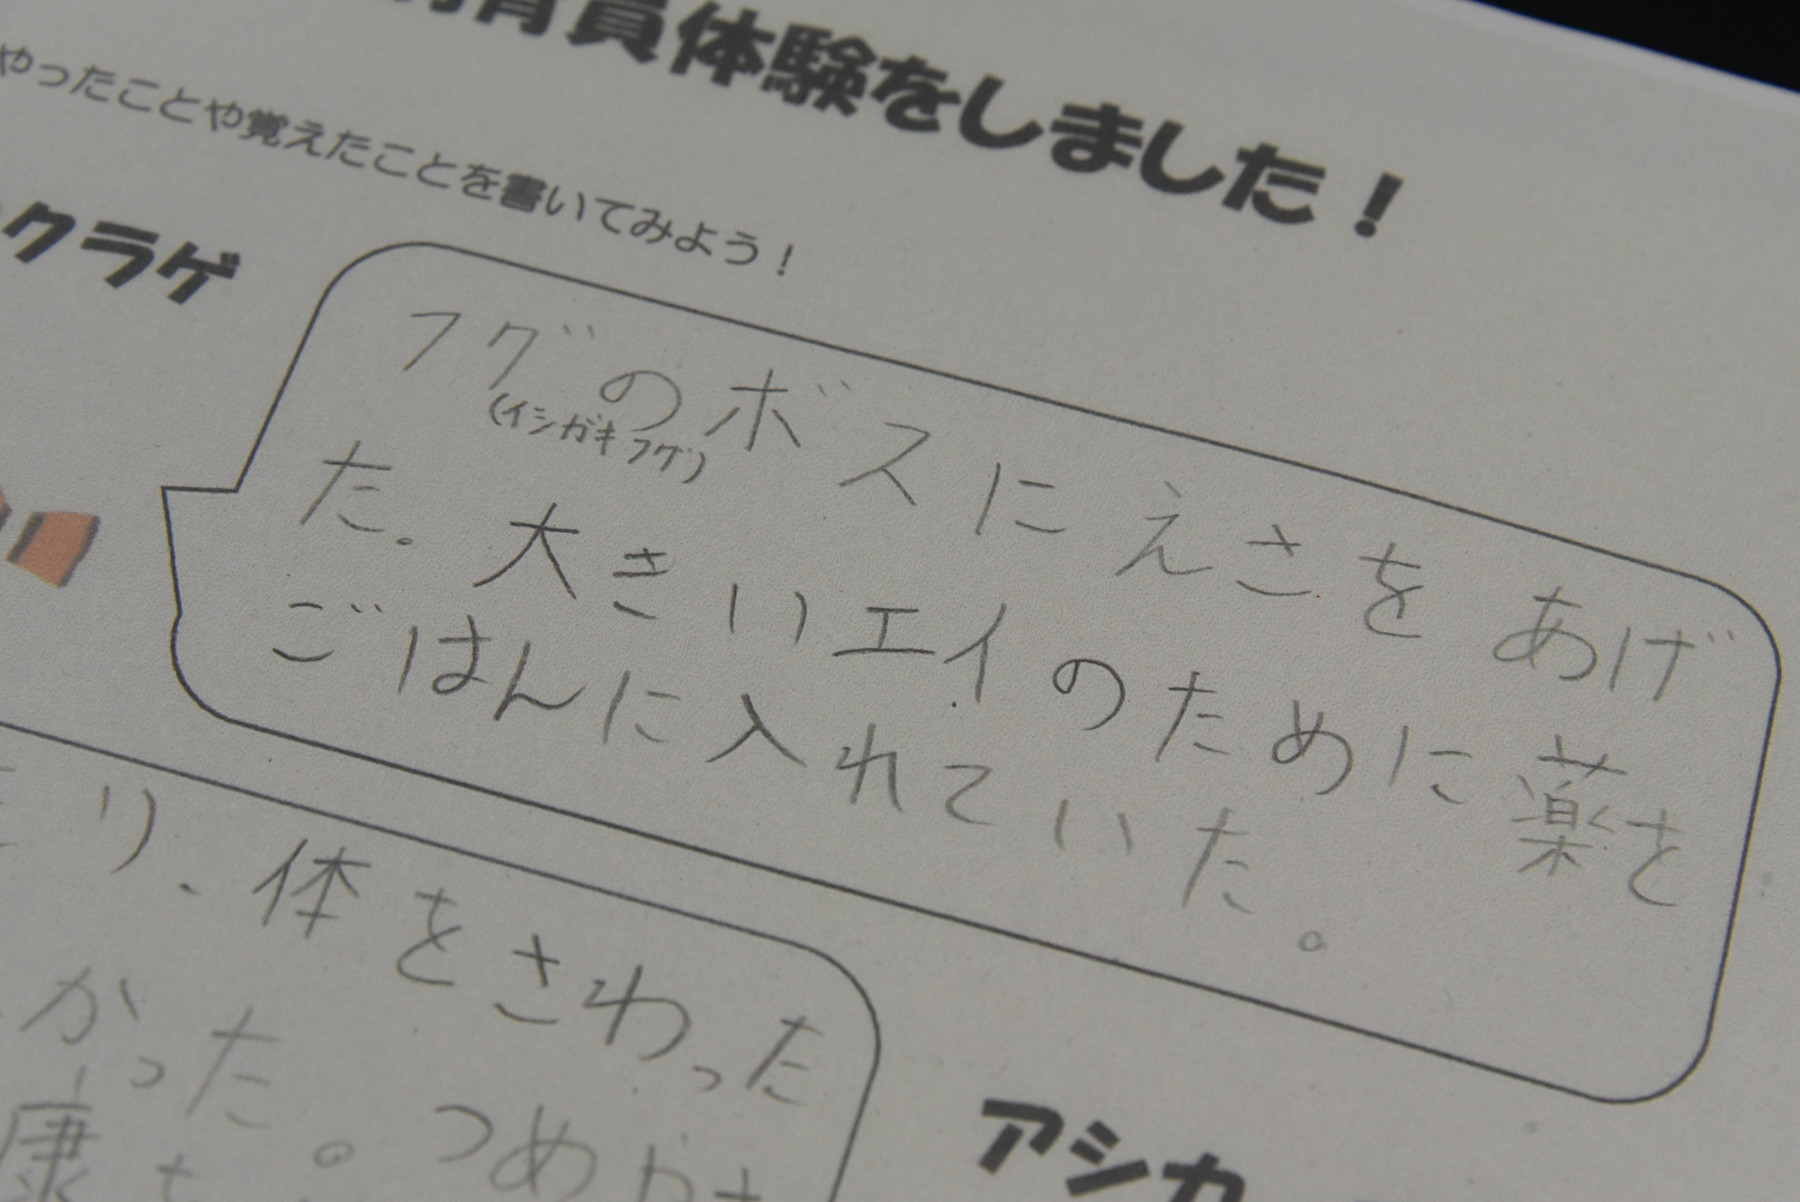 育員体験をしました！
やったことや覚えたことを書いてみよう！
クラゲ
フグのボスにえさをあげ
(イシガキフグ)
た。大きいエイのために薬を
ごはんに入れていた。
り、体をさわった
かった。つめや
康も
アシカ